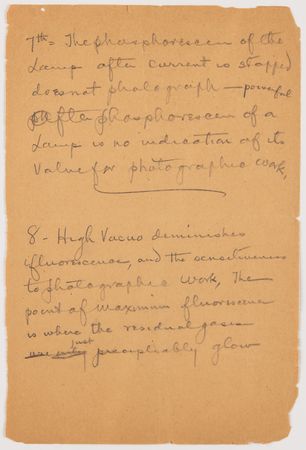 7th = The phosphorescen of the
Lamp after current is stopped
does not photograph — powerful
After phosphorescen of a
Lamp is no indication of its
Value for photographic work,
8 - High Vacuo deminishes
fluorescence, and the sensitiveness
to photographic work, The
point of Maximum fluorescence
is where the residual gases
just preceptibly glow